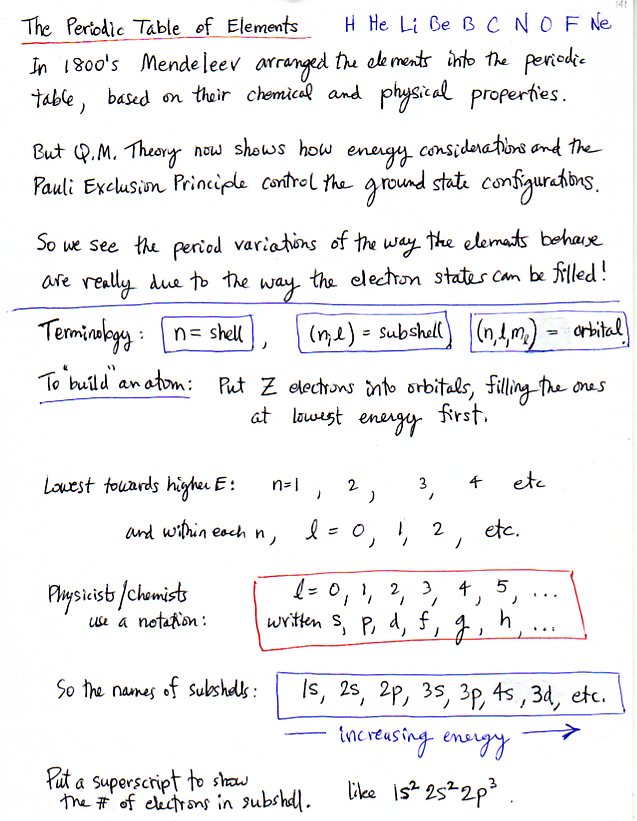 141
The Periodic Table of Elements H He Li Be B C N O F Ne
In 1800's Mendeleev arranged the elements into the periodic
table, based on their chemical and physical properties.
But Q.M. Theory now shows how energy considerations and the
Pauli Exclusion Principle control the ground state configurations.
So we see the period variations of the way the elements behave
are really due to the way the electron states can be filled!
Terminology: n = shell, (n,l) = subshell (n,l,mₗ) = orbital.
To "build" an atom: Put Z electrons into orbitals, filling the ones
at lowest energy first.
Lowest towards higher E: n=1, 2, 3, 4 etc
and within each n, l = 0, 1, 2, etc.
Physicists/chemists l = 0, 1, 2, 3, 4, 5, ...
use a notation: written s, p, d, f, g, h, ...
So the names of subshells: 1s, 2s, 2p, 3s, 3p, 4s, 3d, etc.
increasing energy →
Put a superscript to show
the # of electrons in subshell. like 1s² 2s² 2p³.